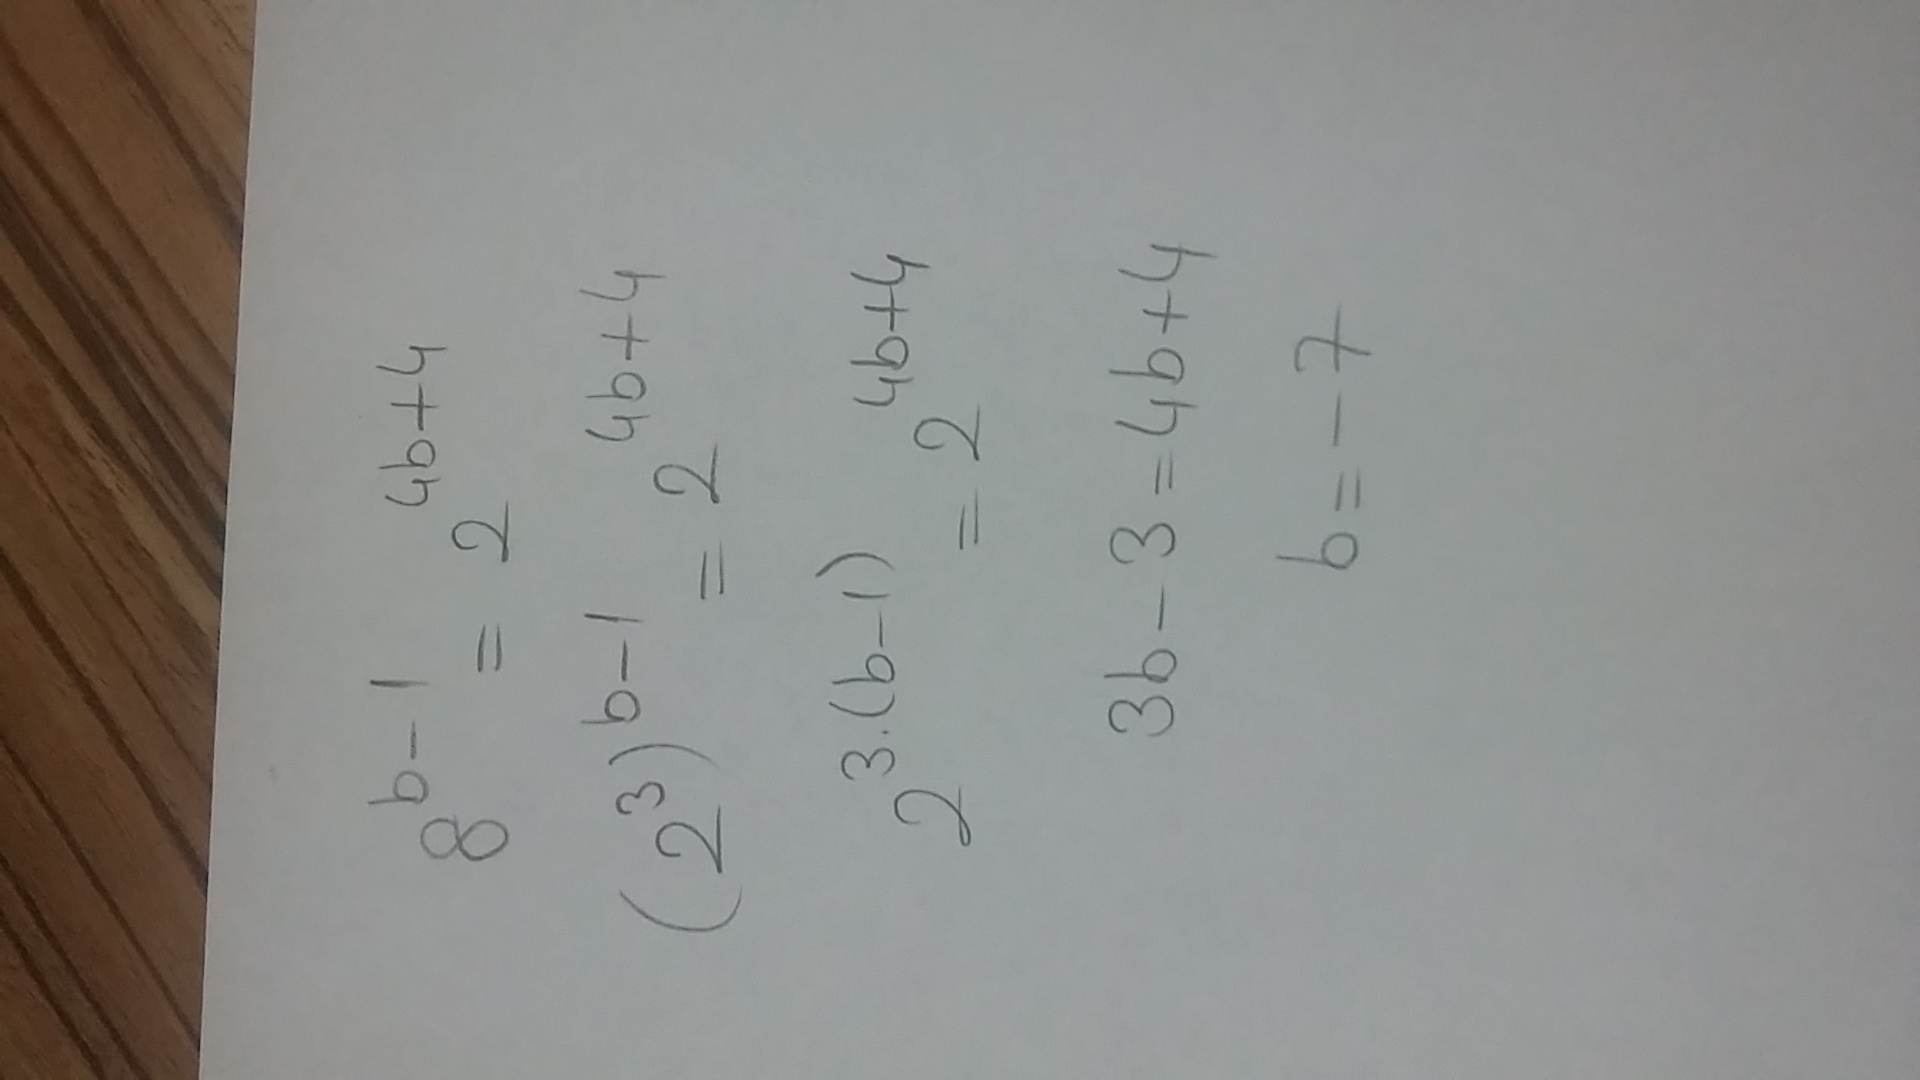 8^{b-1} = 2^{4b+4}
(2^3)^{b-1} = 2^{4b+4}
2^{3.(b-1)} = 2^{4b+4}
3b-3=4b+4
b=-7